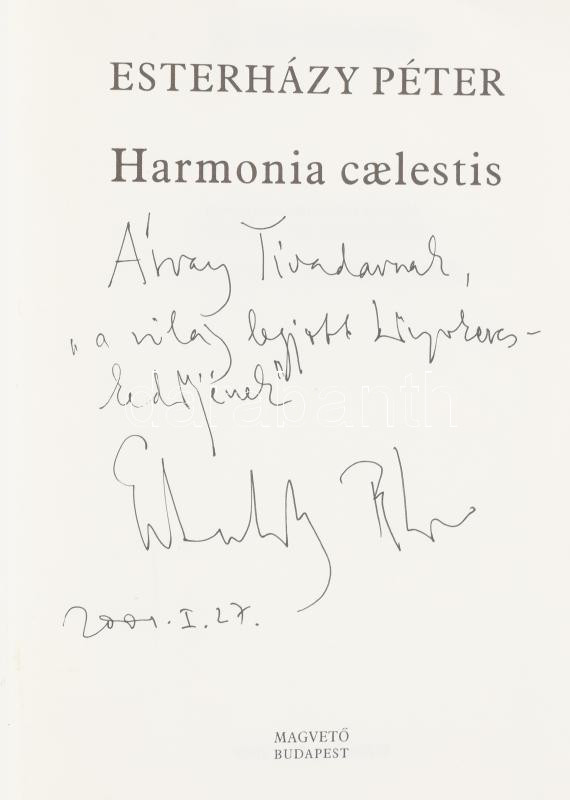 ESTERHÁZY PÉTER
Harmonia cælestis
Árvay Tivadarnak,
„a világ legjobb könyvkeres-
kedőjének"
darabanth
Esterházy Péter
2001. I. 27.
MAGVETŐ
BUDAPEST